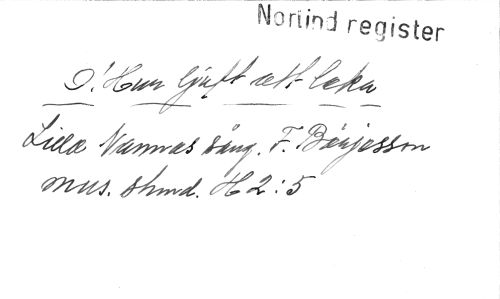 Norlind register
O! Huru ljuft att leka
Lilla Nannas sång. F. Börjesson
mus. skand. H 2:5